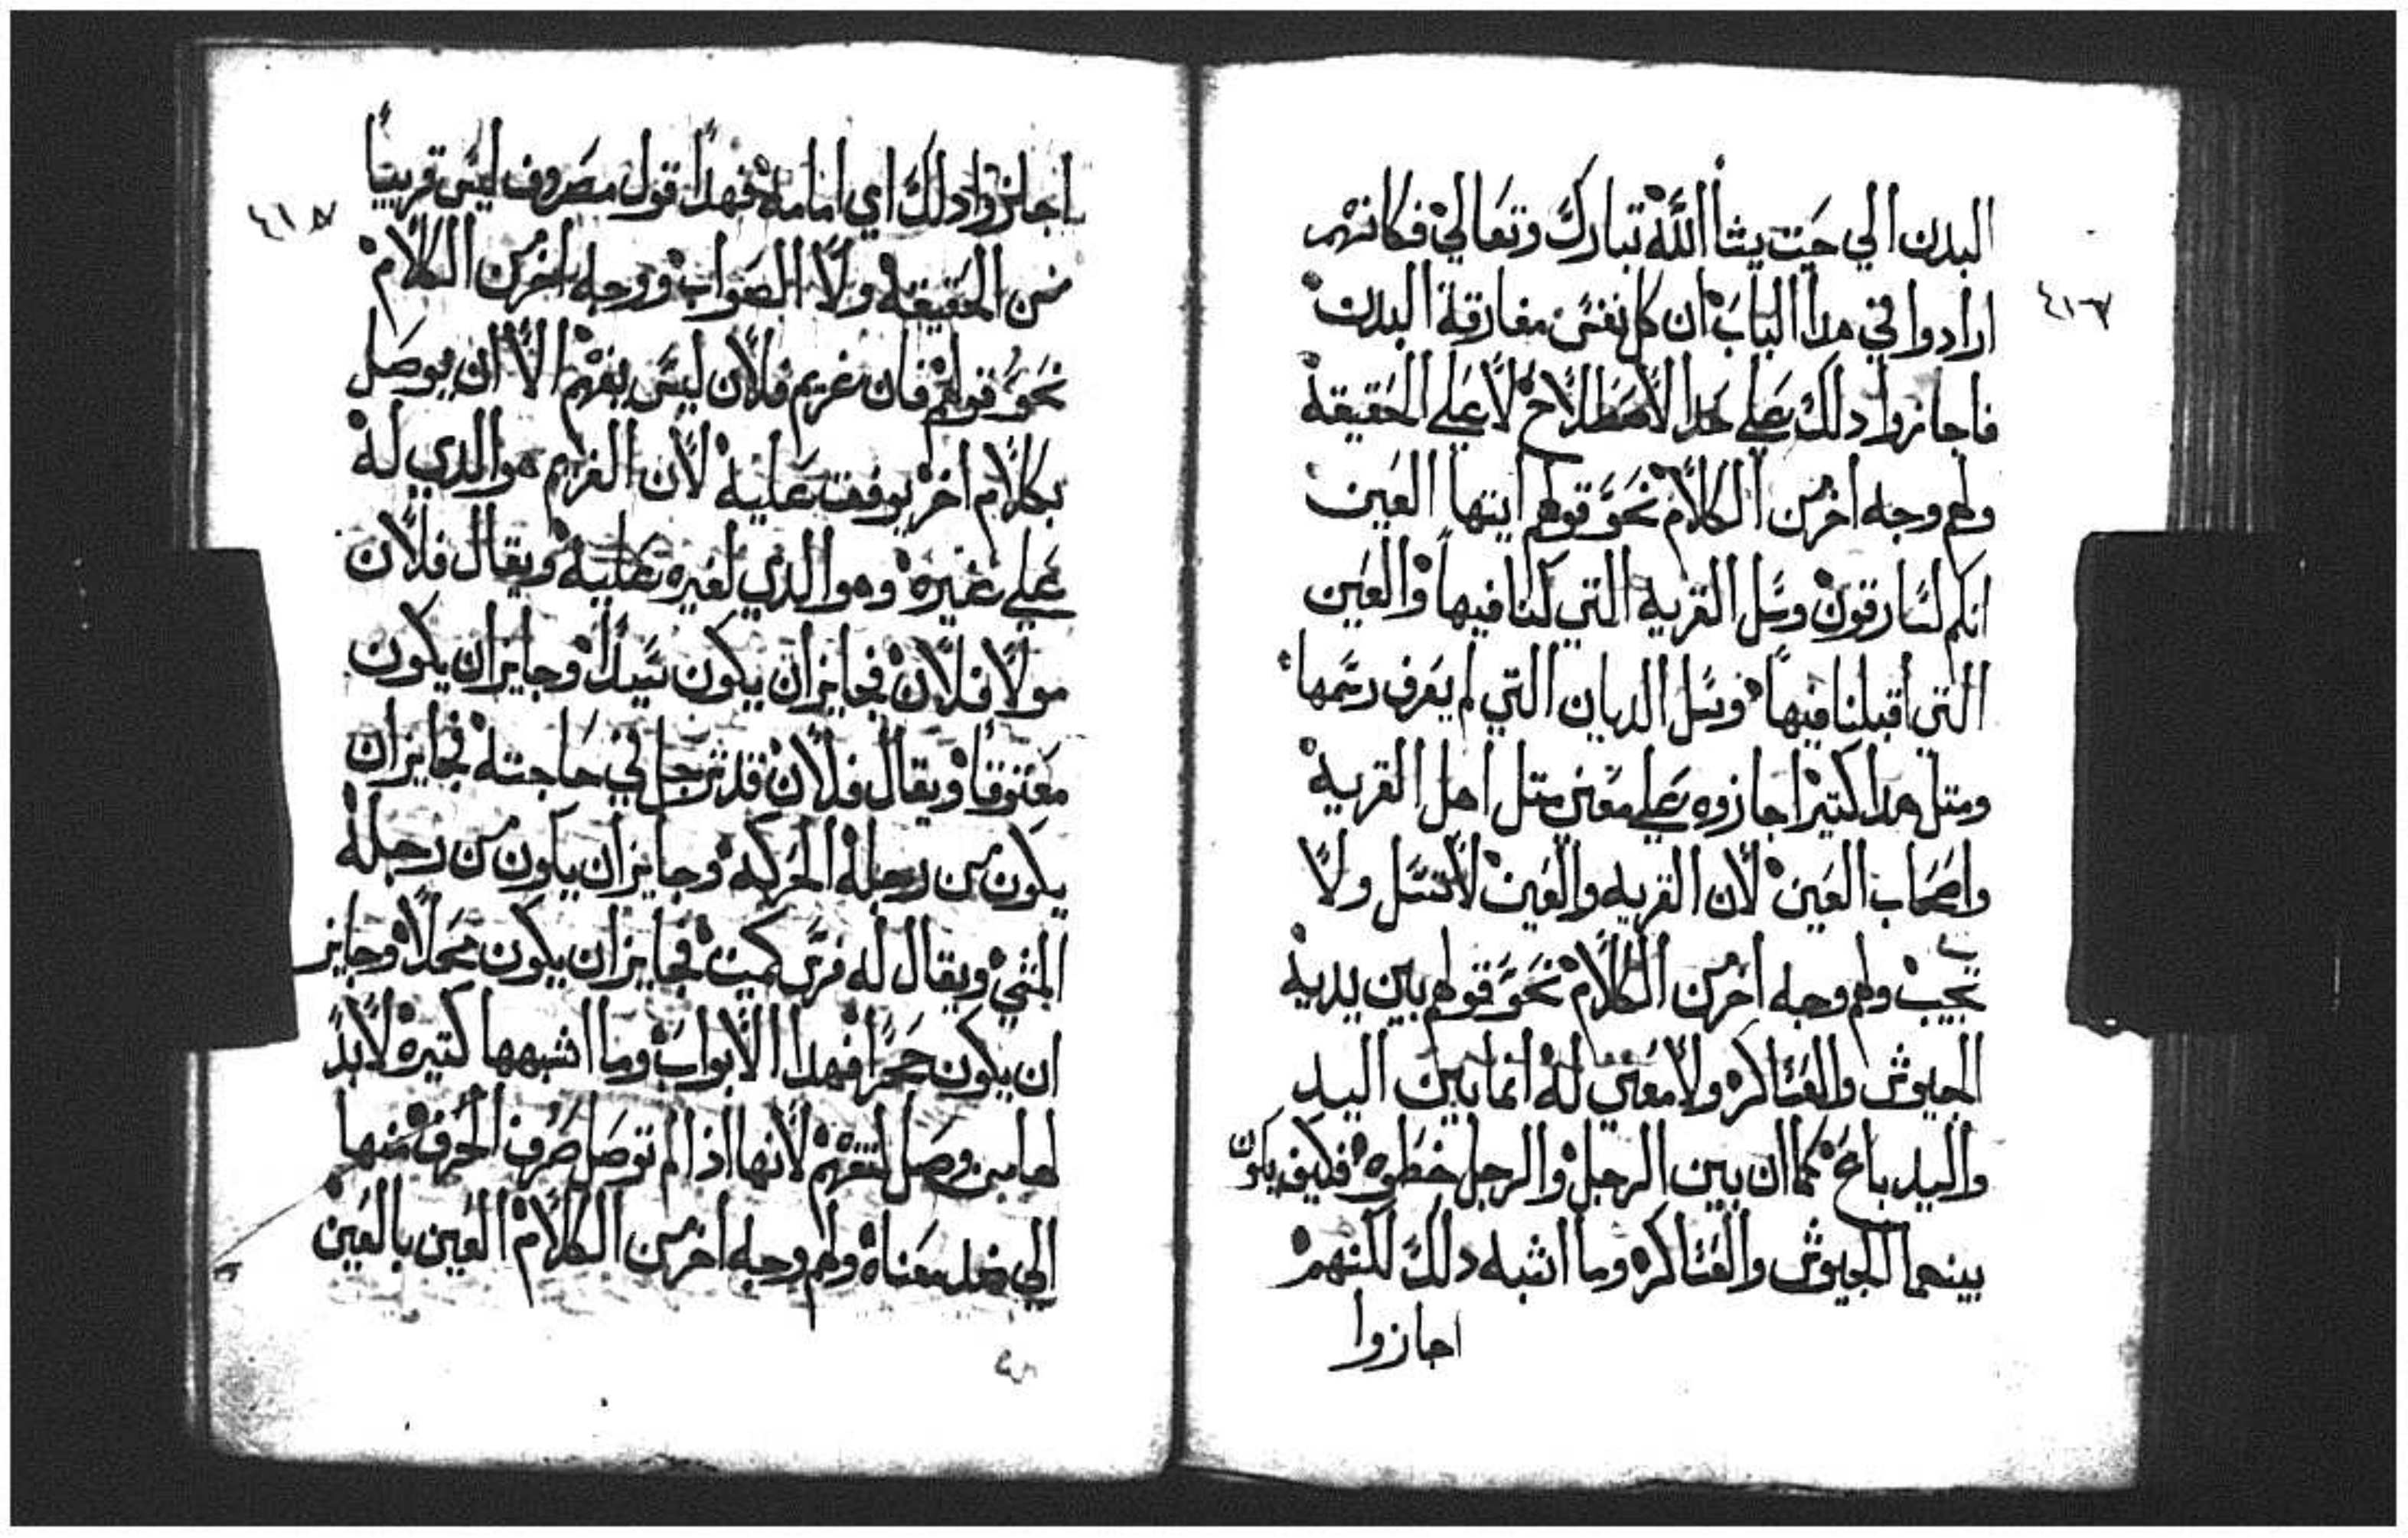 البدن الي حيت يشا اللّٰه تبارك وتعالي فكانهم
ارادوا في هدا الباب ان كل نفس مفارقة البدن
فاجازوا دلك علي هدا الاصطلاح لا علي الحقيقة
ولهم وجه اخر من الكلام نحو قولهم ايتها العين
انكم لسارقون وسل القرية التي كنا فيها والعين
التي اقبلنا فيها وسل الديان التي لم يعرف رسمها
ومتل هدا كتير اجازوه علي معني متل اهل القرية
واصحاب العين لان القريه والعين لا تسل ولا
تجيب ولهم وجه اخر من الكلام نحو قولهم بين يديه
الجيوش والعساكر ولا معني له انما بين اليد
واليد باع كما ان بين الرجل والرجل خطوه فكيف يكون
بينهما الجيوش والعساكر وما اشبه دلك لكنهم
اجازوا
٤١٦
اجازوا دلك اي امامه فهدا قول مصروف ليس قريبا
من الحقيقه ولا الصواب ووجه اخر من الكلام
نحو قولهم فان غريم فلان ليس يفهم الا ان يوصل
بكلام اخر يوقفت عليه لان الغريم هو الدي له
علي غيره وهو الدي لغيره عليه ويقال فلان
مولا فلان فجايز ان يكون سيدا وجايز ان يكون
معتوقا ويقال فلان قد ترجل في حاجته فجايز ان
يكون من رجله الحركه وجايز ان يكون من رجله
المشي ويقال له فرس كميت فجايز ان يكون فحلا وجايز
ان يكون حجرا فهدا الابواب وما اشبهها كتيره لابد
لها من وصل لتفهم لانها اذا لم توصل صرف الحرف منها
الي ضد معناه ولهم وجه اخر من الكلام العين بالعين
٤١٥